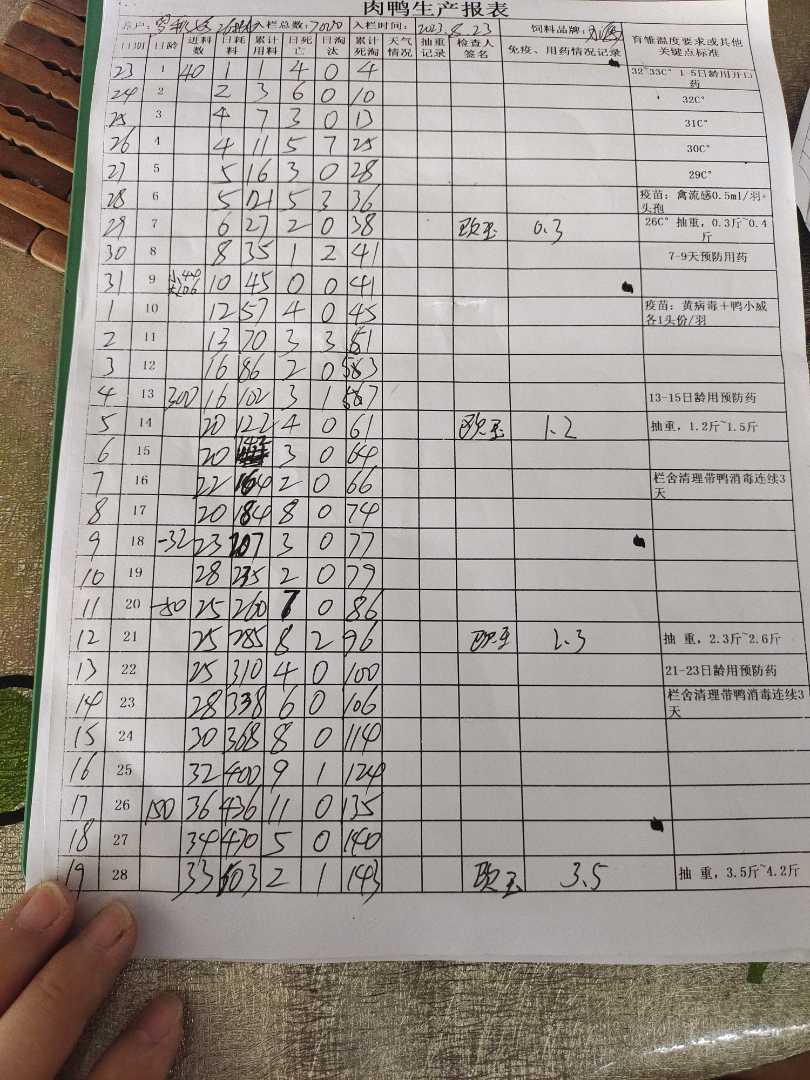 肉鸭生产报表
入栏总数:7000 入栏时间:2023.8.23 饲料品牌:
日期 日龄 进料数 日耗料 累计用料 日死亡 日淘汰 累计死淘 天气情况 抽重记录 检查人签名 免疫、用药情况记录 育雏温度要求或其他关键点标准
23 1 40 1 1 4 0 4 32~33C° 1-5日龄用开口药
24 2 2 3 6 0 10 32C°
25 3 4 7 3 0 13 31C°
26 4 4 11 5 7 25 30C°
27 5 5 16 3 0 28 29C°
28 6 5 21 5 3 36 疫苗:禽流感0.5ml/羽。头孢
29 7 6 27 2 0 38 0.3 26C° 抽重,0.3斤~0.4斤
30 8 8 35 1 2 41 7-9天预防用药
31 9 10 45 0 0 41
1 10 12 57 4 0 45 疫苗:黄病毒+鸭小威各1头份/羽
2 11 13 70 3 3 51
3 12 16 86 2 0 53
4 13 300 16 102 3 1 57 13-15日龄用预防药
5 14 20 122 4 0 61 1.2 抽重,1.2斤~1.5斤
6 15 20 142 3 0 64
7 16 22 164 2 0 66 栏舍清理带鸭消毒连续3天
8 17 20 184 8 0 74
9 18 -32 23 207 3 0 77
10 19 28 235 2 0 79
11 20 -80 25 260 7 0 86
12 21 25 285 8 2 96 2.3 抽 重,2.3斤~2.6斤
13 22 25 310 4 0 100 21-23日龄用预防药
14 23 28 338 6 0 106 栏舍清理带鸭消毒连续3天
15 24 30 368 8 0 114
16 25 32 400 9 1 124
17 26 150 36 436 11 0 135
18 27 34 470 5 0 140
19 28 33 503 2 1 143 3.5 抽 重,3.5斤~4.2斤